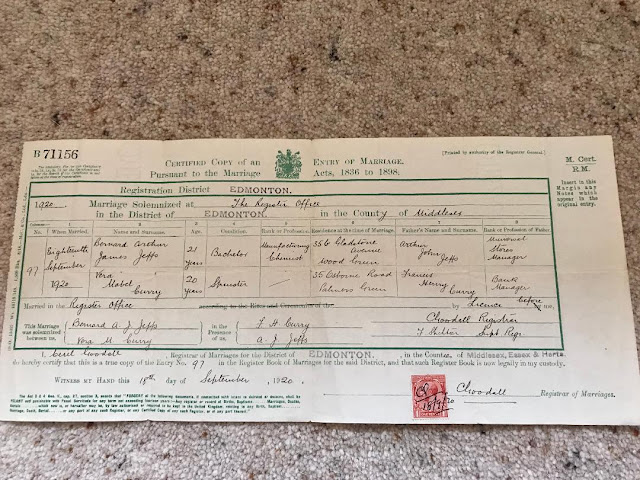 B 71156
CERTIFIED COPY OF AN ENTRY OF MARRIAGE.
[Printed by authority of the Registrar General.]
Pursuant to the Marriage Acts, 1836 to 1898.
M. Cert.
R.M.
Insert in this Margin any Notes which appear in the original entry.
Registration District EDMONTON.
1920. Marriage Solemnized at The Register Office
in the District of EDMONTON. in the County of Middlesex
No. When Married. Name and Surname. Age. Condition. Rank or Profession. Residence at time of Marriage. Father's Name and Surname. Rank or Profession of Father.
97 Eighteenth September 1920
Bernard Arthur James Jeffs 21 years Bachelor Manufacturing Chemist Gladstone Avenue Wood Green Arthur John Jeffs Stores Manager
Vera Mabel Curry 20 years Spinster — 35 Osborne Road Palmers Green Francis Henry Curry Bank Manager
Married in the Register Office according to the Rites and Ceremonies of the by Licence before me,
This Marriage was solemnized between us,
Bernard A J Jeffs
Vera M Curry
in the Presence of us,
F. H. Curry
A. J. Jeffs
C Woodall Registrar
Supt. Regr.
I, Cecil Woodall Registrar of Marriages for the District of EDMONTON. , in the Counties of Middlesex, Essex & Herts.
do hereby certify that this is a true copy of the Entry No. 97 in the Register Book of Marriages for the said District, and that such Register Book is now legally in my custody.
WITNESS MY HAND this 18th day of September, 1920.
C Woodall Registrar of Marriages.